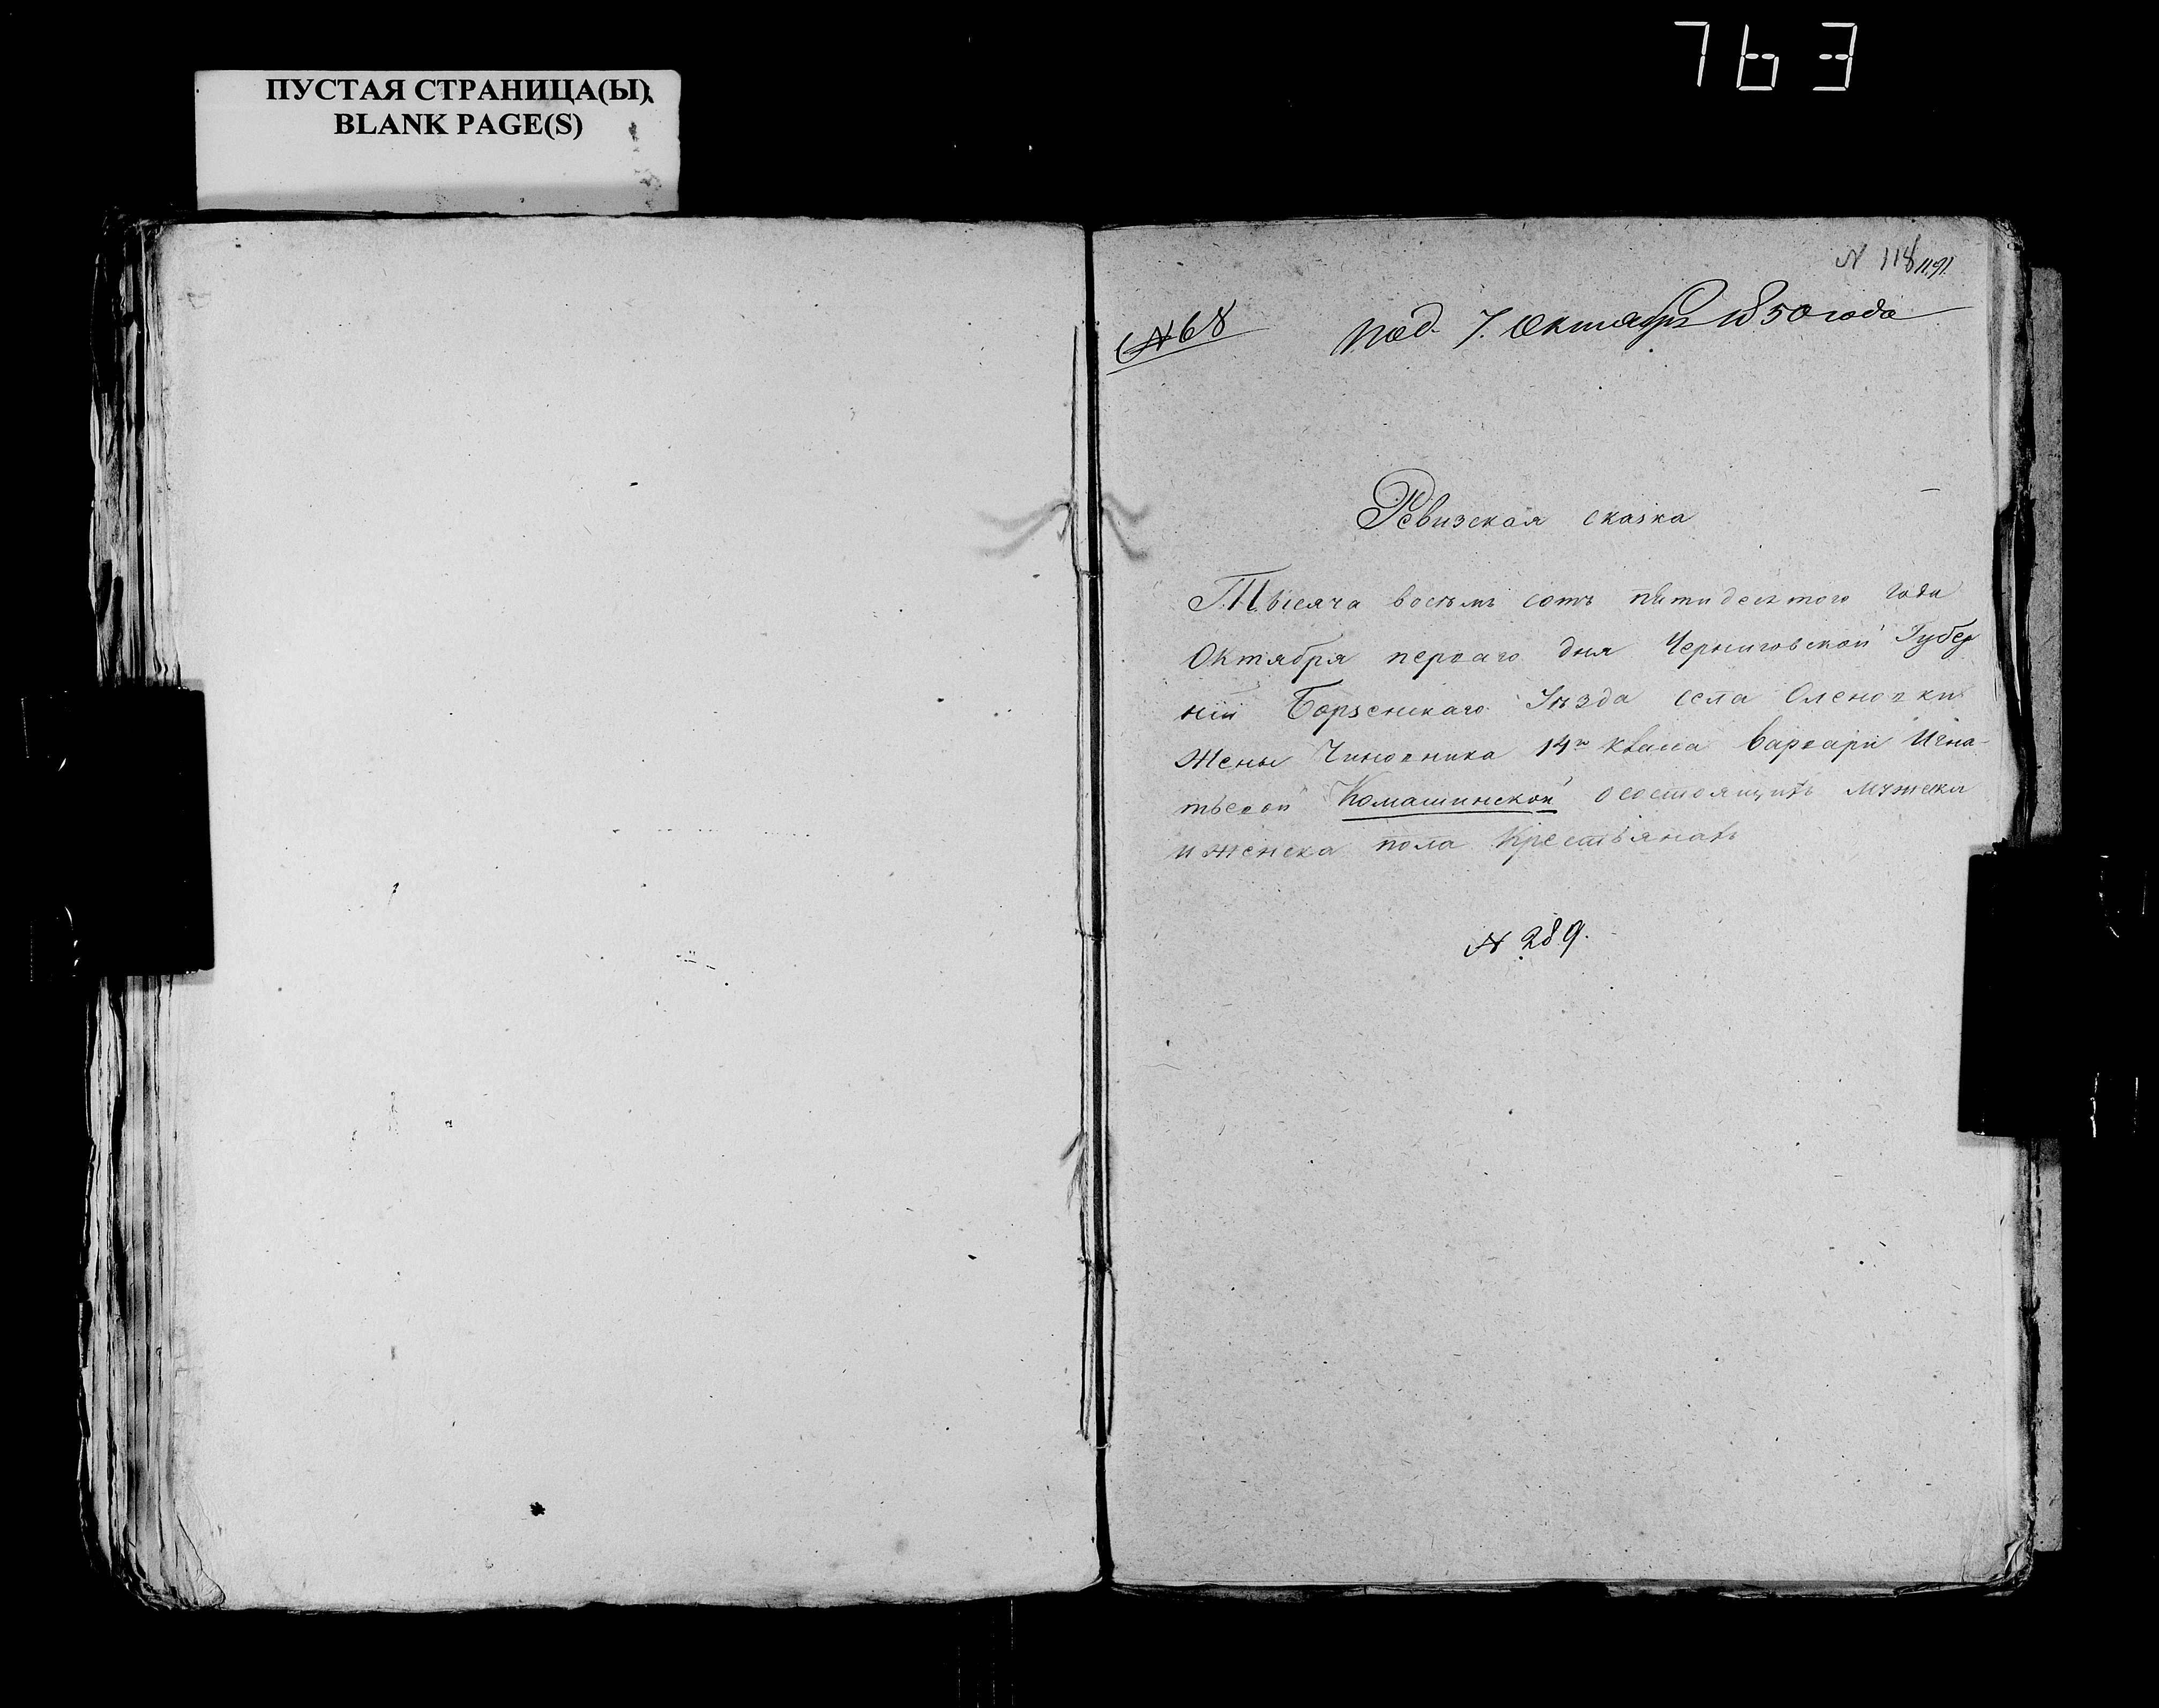 763
ПУСТАЯ СТРАНИЦА(Ы)
BLANK PAGE(S)
N 118 1191.
N 68
Под. 7. Октября 1850 года
Ревизская сказка
Тысяча восемь сотъ пятидесятого года
Октября перваго дня Черниговской Губер
ніи Борзенскаго Уѣзда села Оленовки
Жены Чиновника 14го класса Варвари Игна-
тьевой Комашинской о состоящихъ мужска
и женска пола Крестьянахъ
N 289.